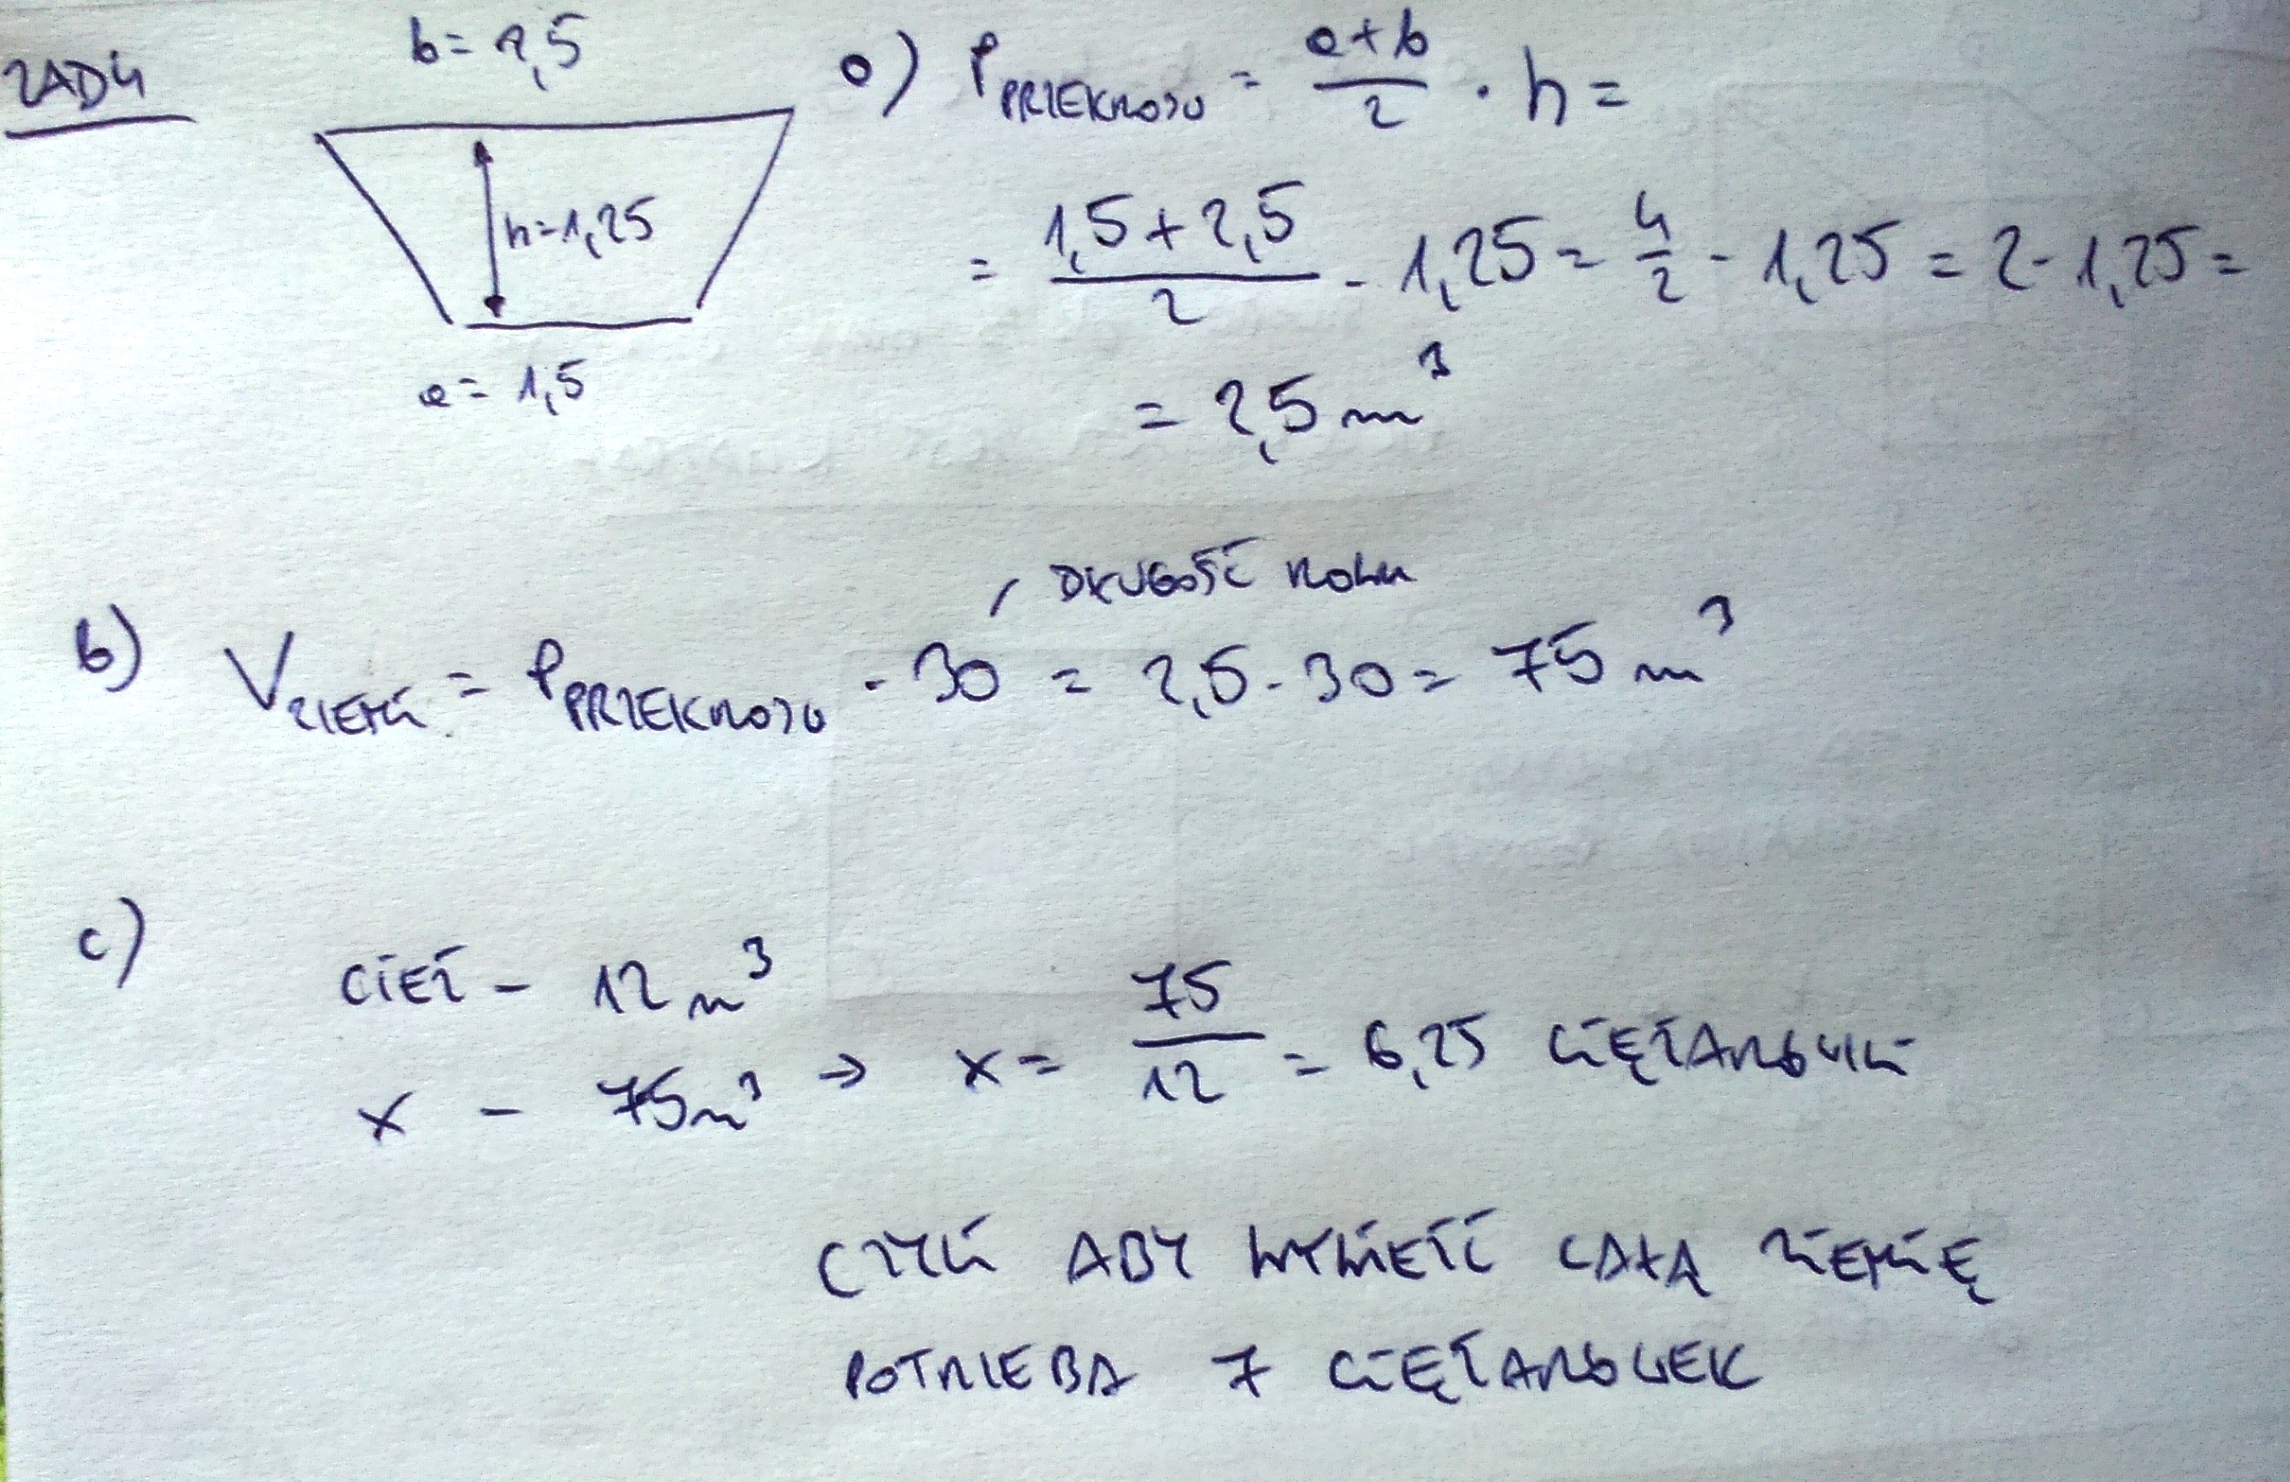 ZAD4
b = 2,5
h = 1,25
a = 1,5
a) P PRZEKROJU = a+b/2 · h =
= 1,5 + 2,5/2 · 1,25 = 4/2 · 1,25 = 2 · 1,25 =
= 2,5 m³
DŁUGOŚĆ ROWU
b) V ZIEMI = P PRZEKROJU · 30 = 2,5 · 30 = 75 m³
c)
CIĘŻ – 12 m³
x – 75 m³ → x = 75/12 = 6,25 CIĘŻARÓWKI
CZYLI ABY WYWIEŹĆ CAŁĄ ZIEMIĘ
POTRZEBA 7 CIĘŻARÓWEK